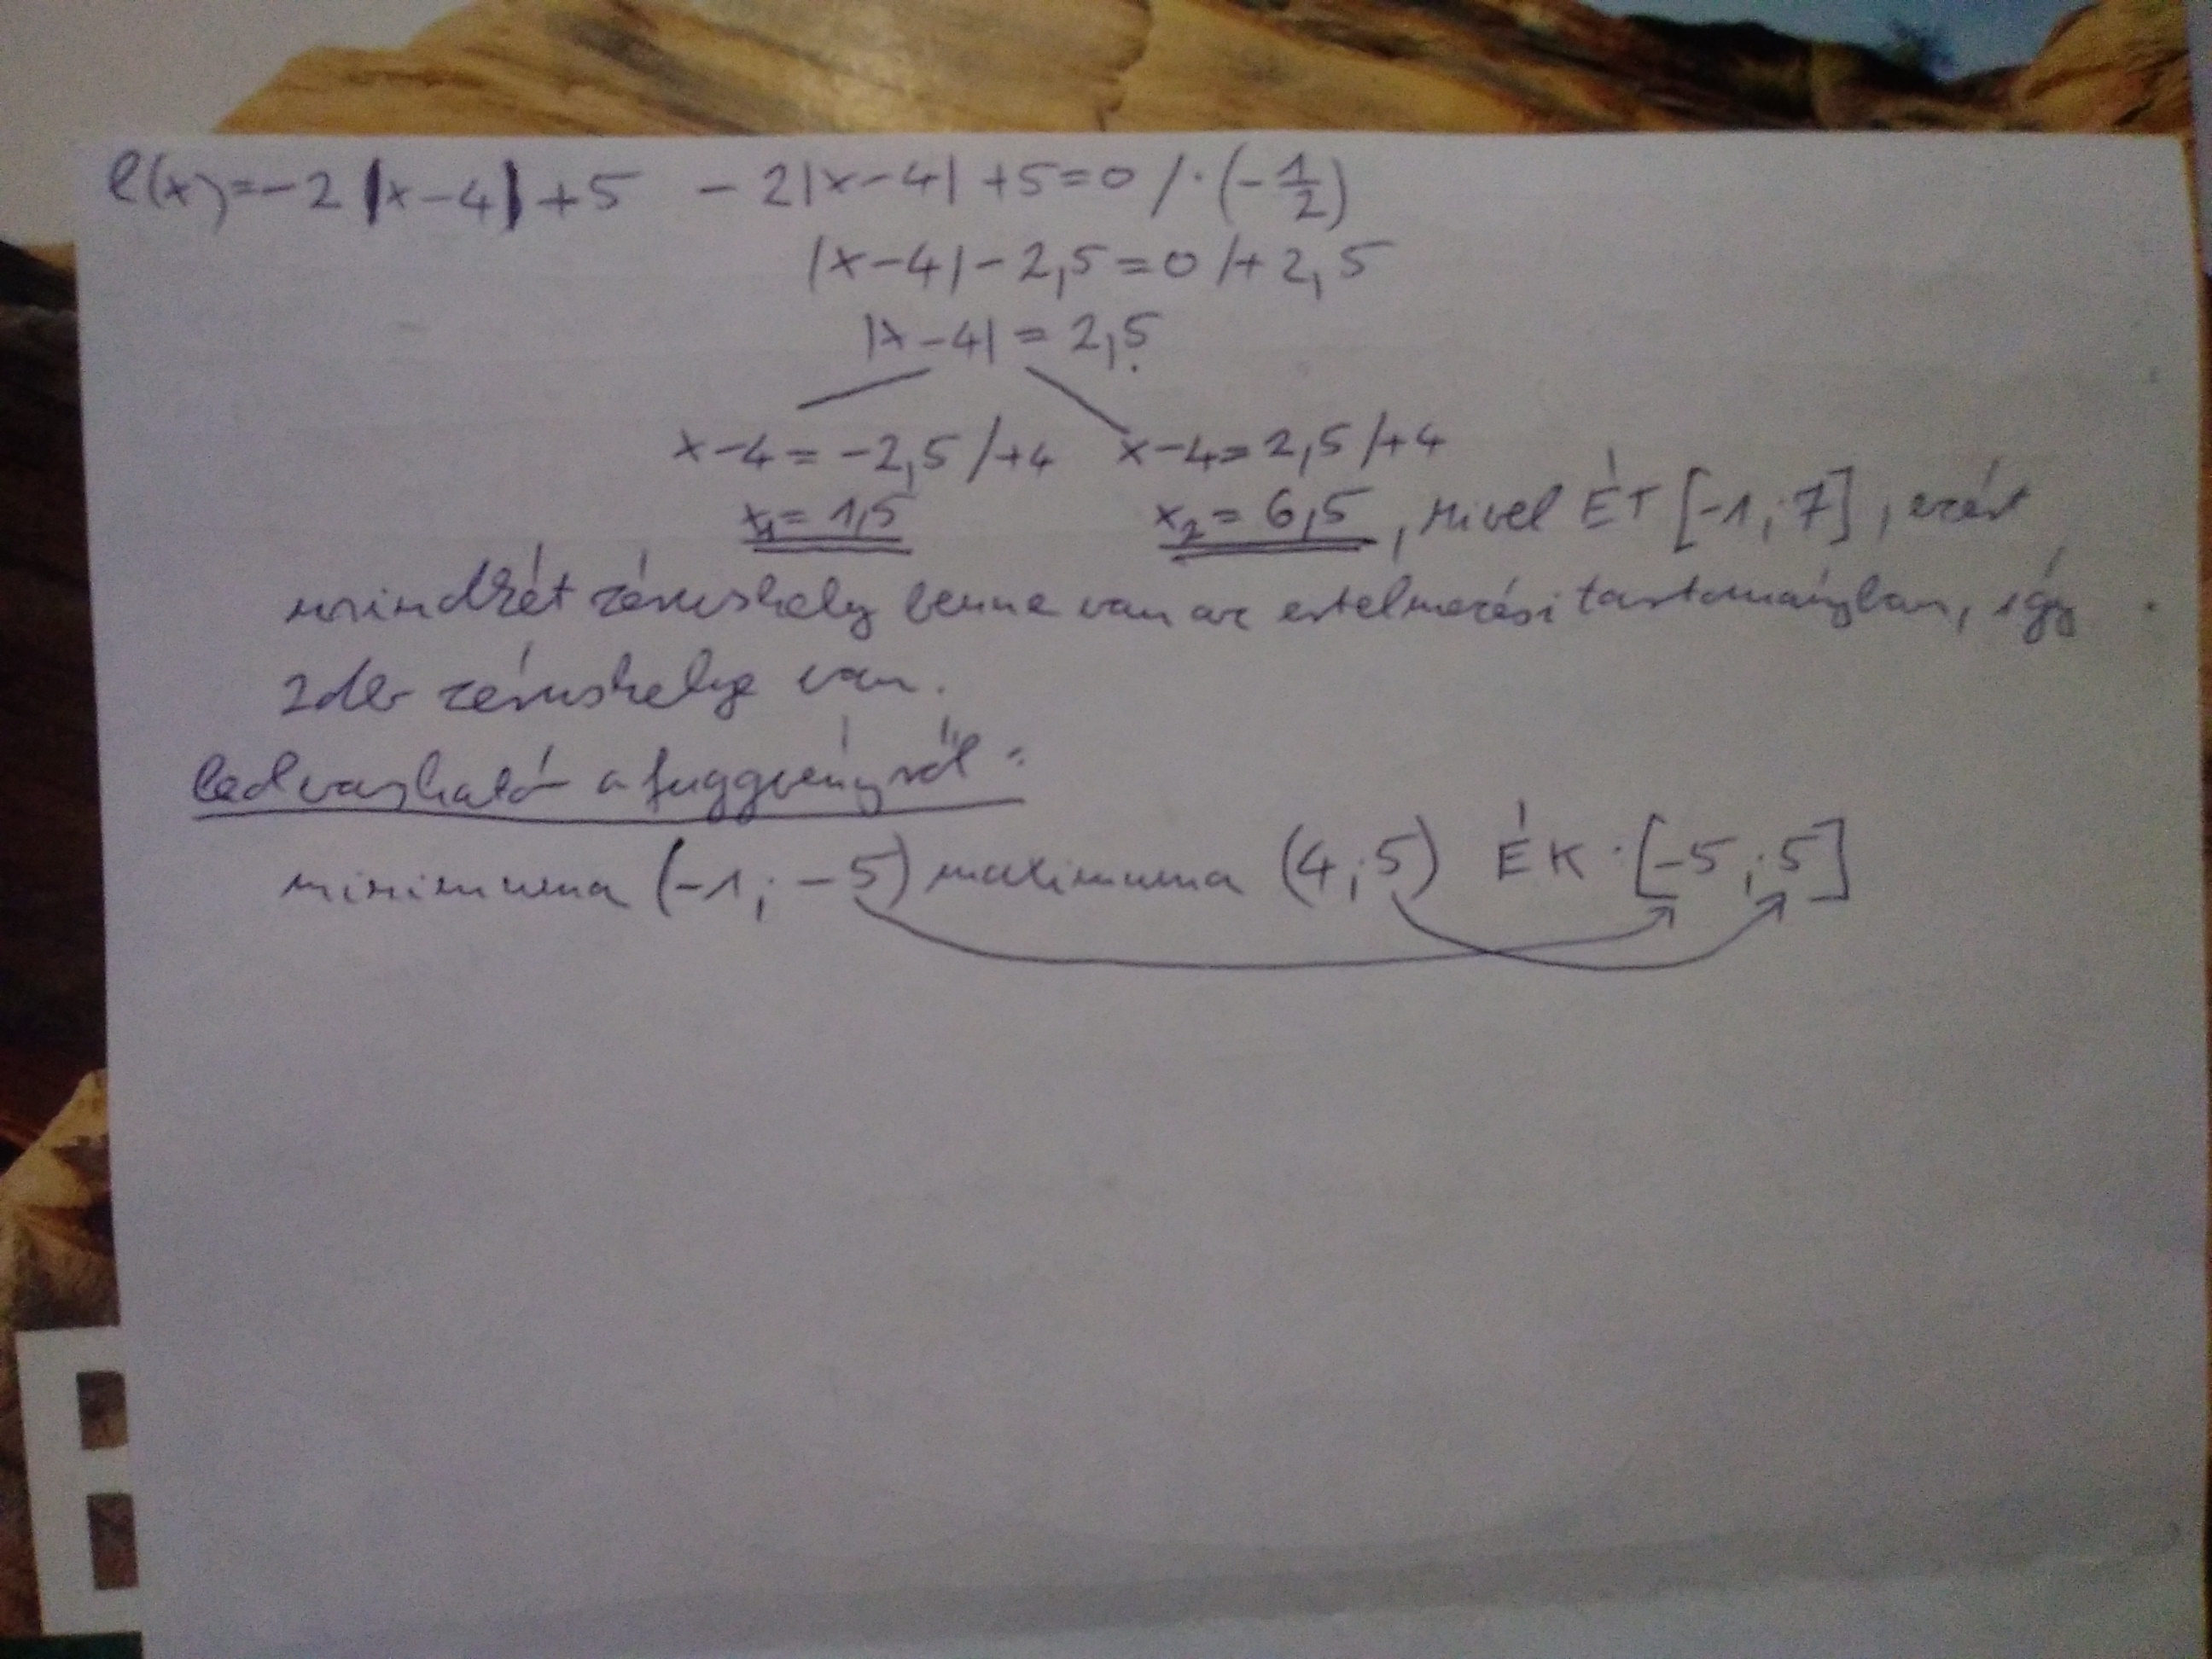 l(x)=-2|x-4|+5 -2|x-4|+5=0 /·(-1/2)
|x-4|-2,5=0 /+2,5
|x-4|=2,5
x-4=-2,5 /+4 x-4=2,5 /+4
x₁=1,5 x₂=6,5, mivel ÉT [-1;7], ezért
mindkét zérushely benne van az értelmezési tartományban, így
2db zérushelye van.
leolvasható a függvényről:
minimuma (-1;-5) maximuma (4;5) ÉK: [-5;5]